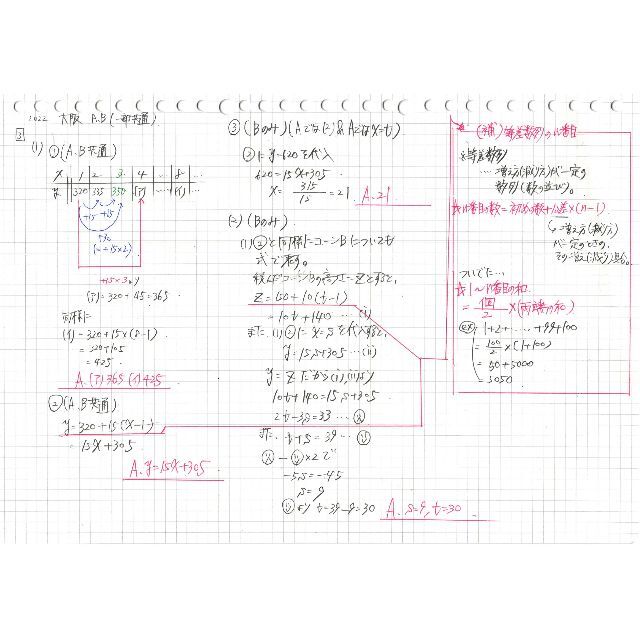 2022 大阪 A.B(一部共通)
3
(1) ①(A.B共通)
x 1 2 3 4 … 8 …
y 320 335 350 (ア) … (イ) …
+15 +15
(=+15×2)
+15×3より
(ア)=320+45=365
同様に
(イ)=320+15×(8-1)
=320+105
=425
A.(ア)365 (イ)425
②(A.B共通)
y=320+15(x-1)
=15x+305
A. y=15x+305
③(Bのみ)(Aでは(2)&Aではx=t)
②にy=620を代入
620=15x+305
x=315/15=21
A.21
(2)(Bのみ)
(1)②と同様にコーンBについても
式で表す。
積んだコーンBの高さ=zとすると,
z=150+10(t-1)
=10t+140 …(i)
また、(1)②にx=sを代入すると,
y=15s+305 …(ii)
y=zだから(i),(ii)より
10t+140=15s+305
2t-3s=33 …㋐
また、t+s=39 …㋑
-5s=-45
s=9
t=39-9=30
A. s=9, t=30
(補)等差数列のn番目
☆等差数列
…増え方(減り方)が一定の
数列(数の並び)。
☆n番目の数=初めの数+公差×(n-1)
↳増え方(減り方)
が一定のときの,
その増え(減り)度合。
ついでに…
☆1~n番目の和
=個/2×(両端の和)
ex) 1+2+…+99+100
=100/2×(1+100)
=50+5000
=5050